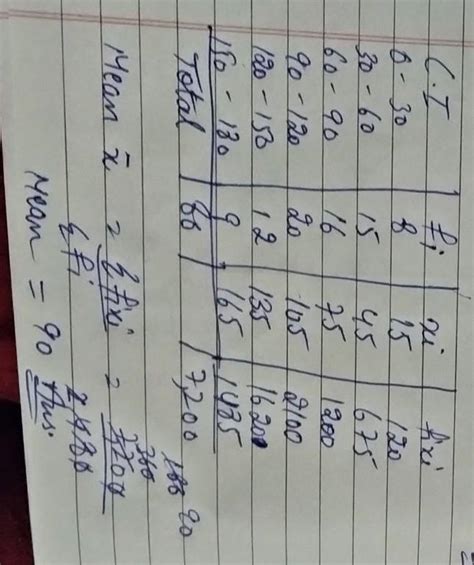 C.I fi xi fixi
0 - 30 8 15 120
30 - 60 15 45 675
60 - 90 16 75 1200
90 - 120 20 105 2100
120 - 150 12 135 16200
150 - 180 9 165 1485
Total 80 7,200
Mean x̄ = Σfixi =
Σfi
Mean = 90 Ans.